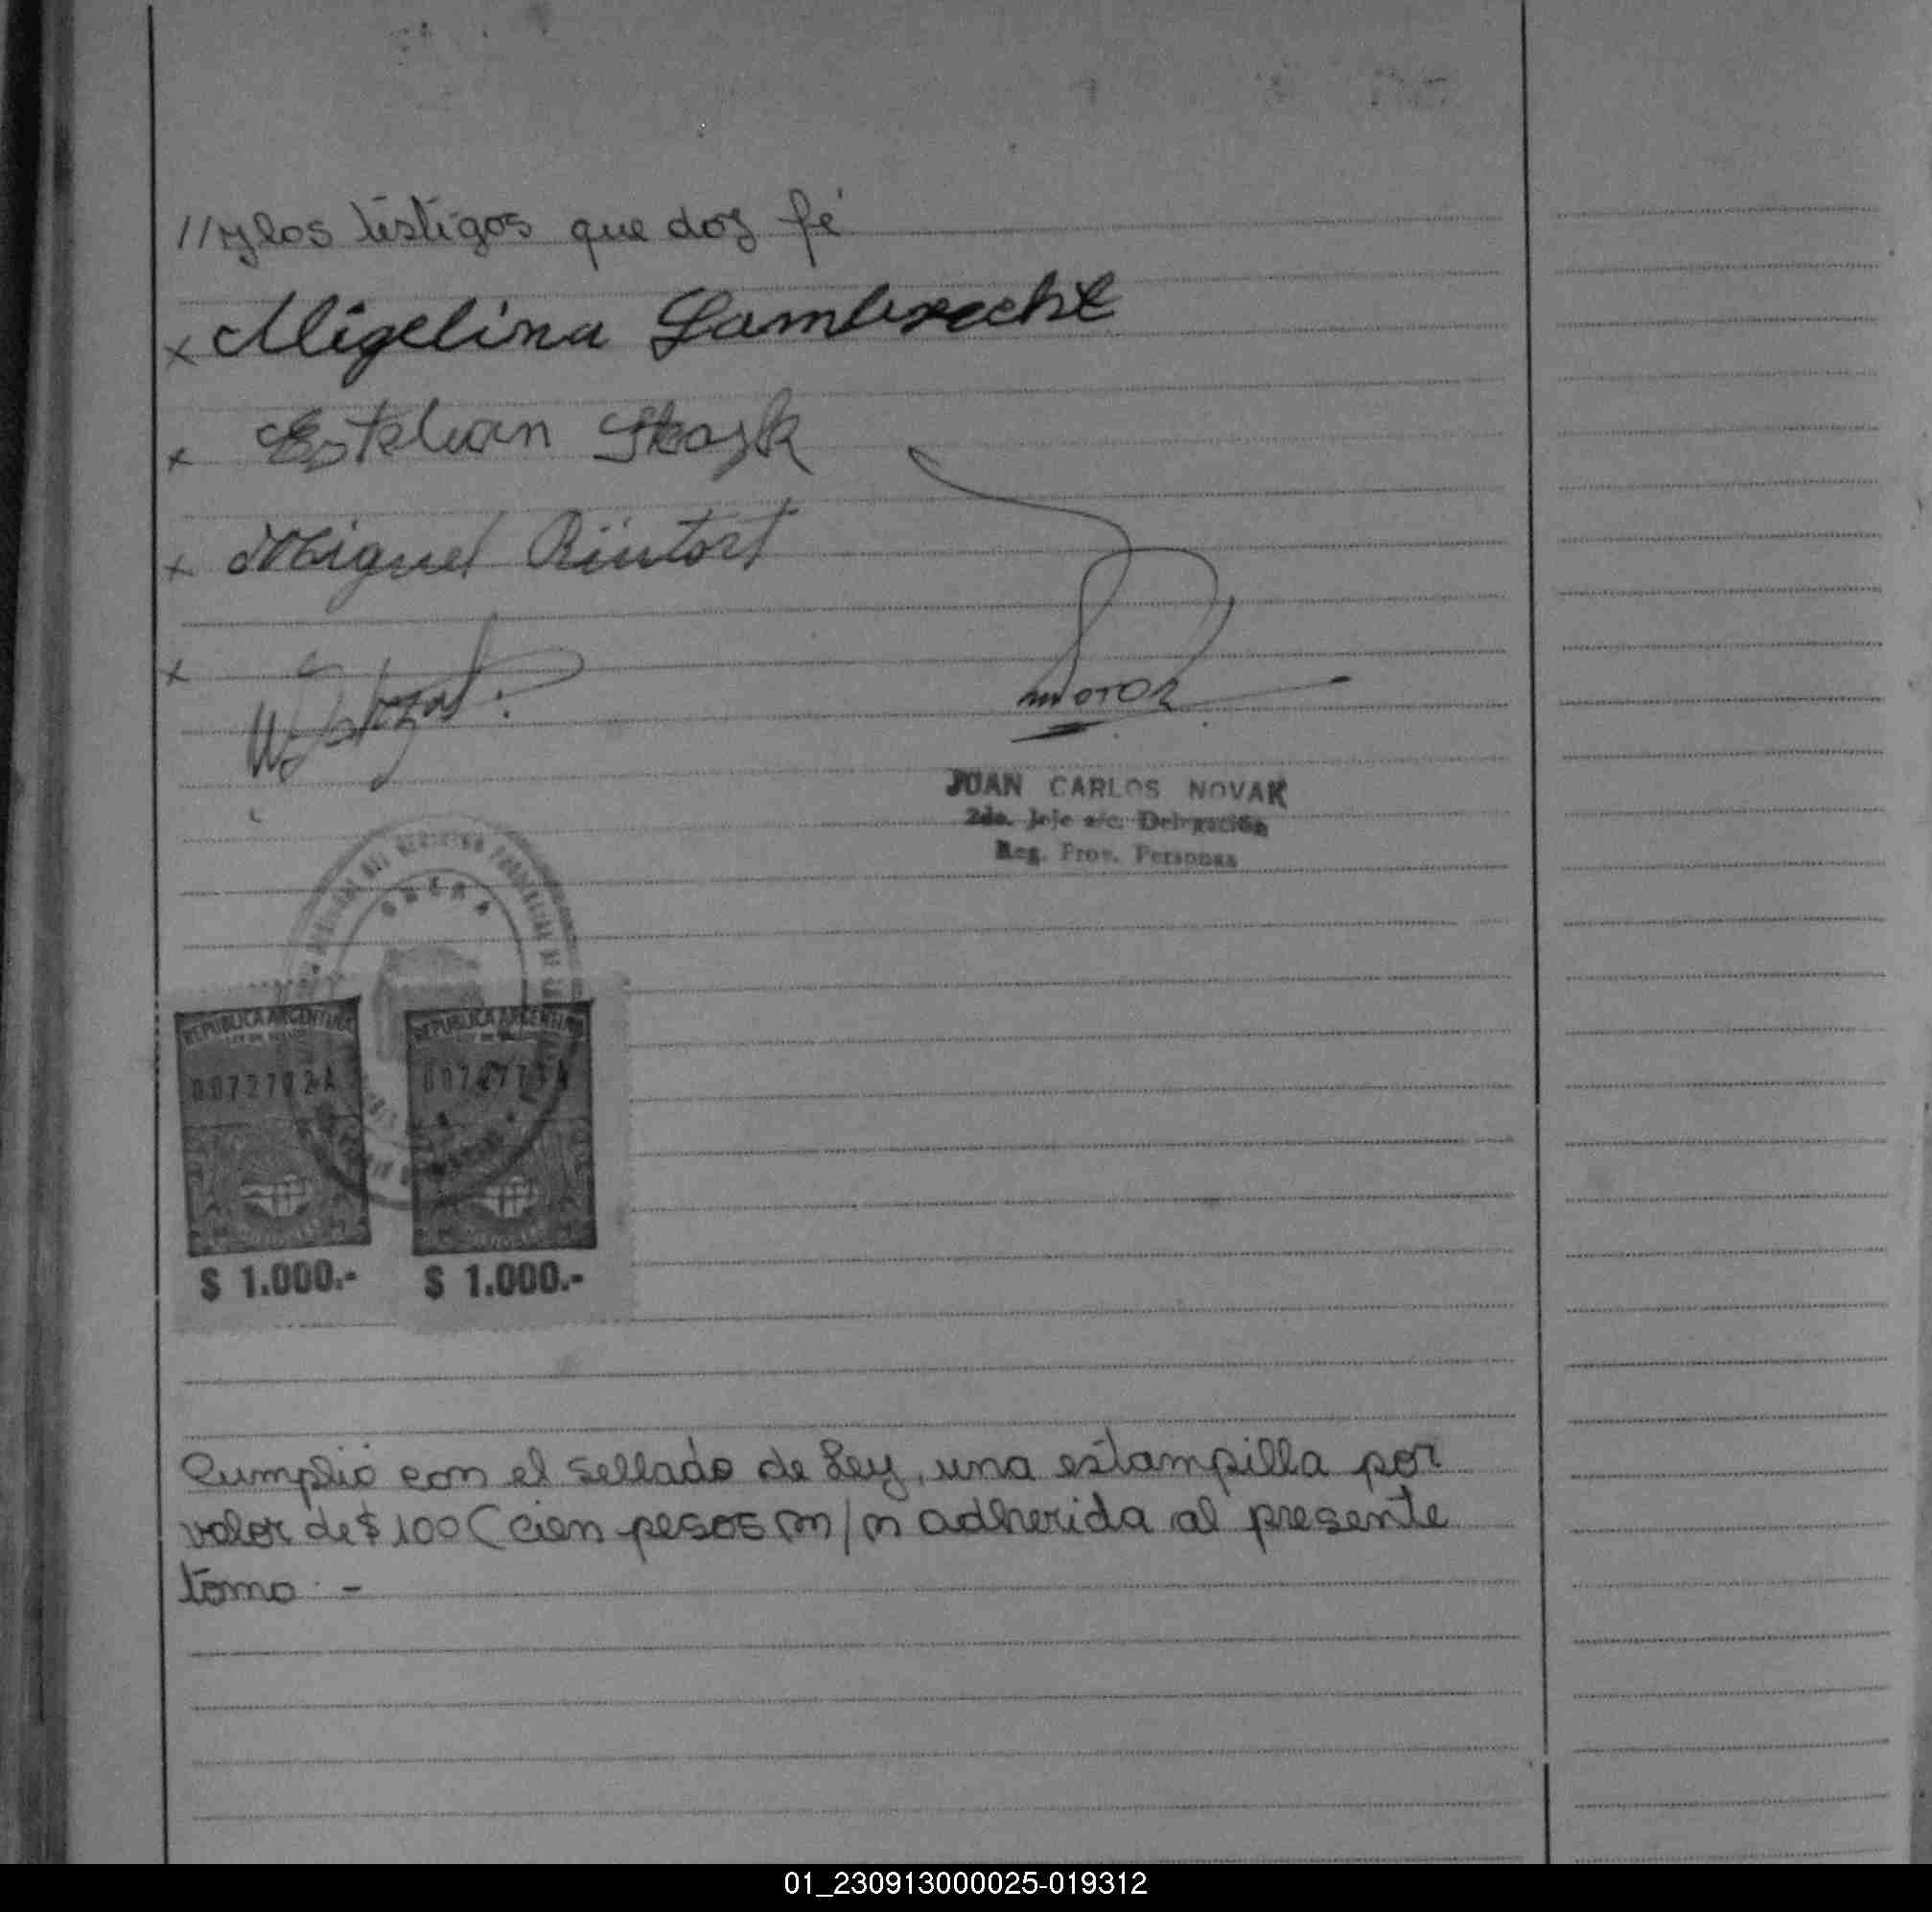 //y los testigos que doy fé
x Migelina Lambrecht
x Esteban
x Miguel Rintort
x
JUAN CARLOS NOVAK
2do. Jefe a/c. Delegación
Reg. Prov. Personas
OBERA
REPUBLICA ARGENTINA REPUBLICA ARGENTINA
$ 1.000.- $ 1.000.-
Cumplió con el sellado de Ley, una estampilla por
valor de $ 100 (cien pesos m/n adherida al presente
tomo. -
01_230913000025-019312